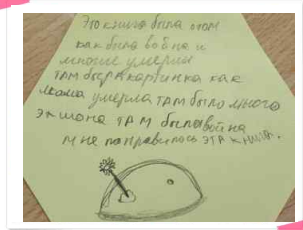 Это книга была о том
как была война и
многие умерли
там была картинка как
мама умерла там было много
экшона там была война
мне понравилось эта книга.